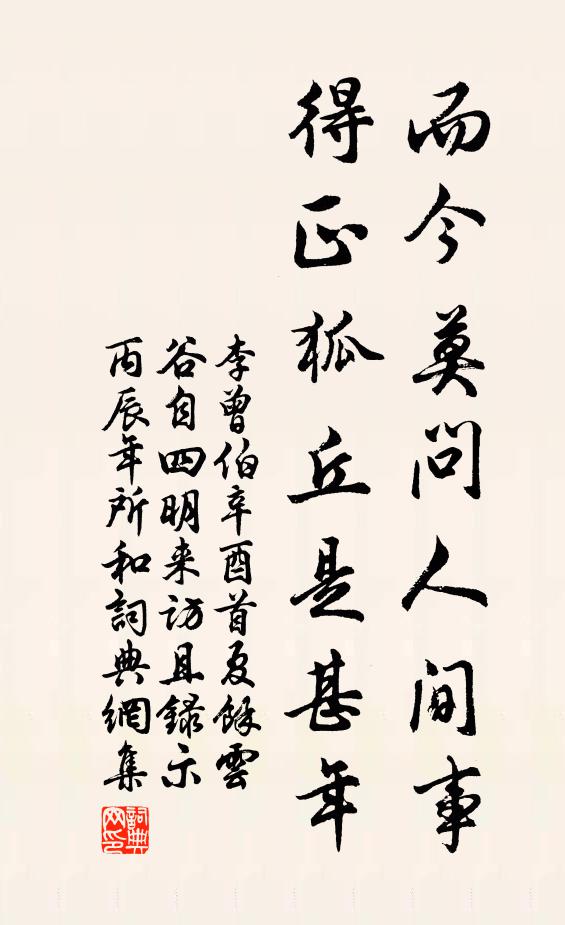 而今莫问人间事
得正狐丘是甚年
李曾伯辛酉首夏餘雲
谷自四明来访且録示
丙辰年所和詞典網集
詞典網印